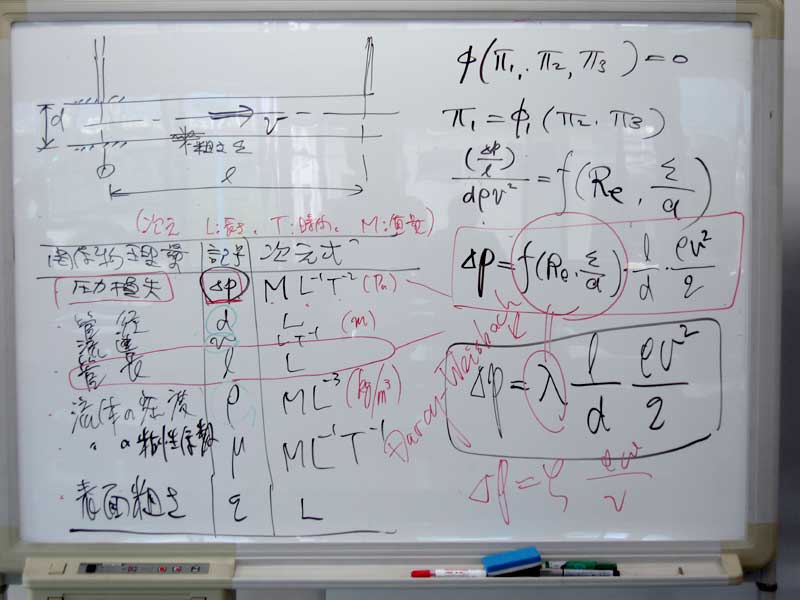 d
v
粗さε
l
(次元 L:長さ, T:時間, M:質量)
関係物理量 記号 次元式
圧力損失 Δp ML⁻¹T⁻² (Pa)
・管径 d L (m)
流速 v LT⁻¹
・管長 l L
・流体の密度 ρ ML⁻³ (kg/m³)
・〃 の粘性係数 μ ML⁻¹T⁻¹
・表面粗さ ε L
φ(π₁, π₂, π₃) = 0
π₁ = φ₁(π₂, π₃)
(Δp/l)/dρv² = f(Re, ε/d)
Δp = f(Re, ε/d)・l/d・ρv²/2
Darcy-Weisbach
Δp = λ l/d ρv²/2
Δp = ζ ρv²/2